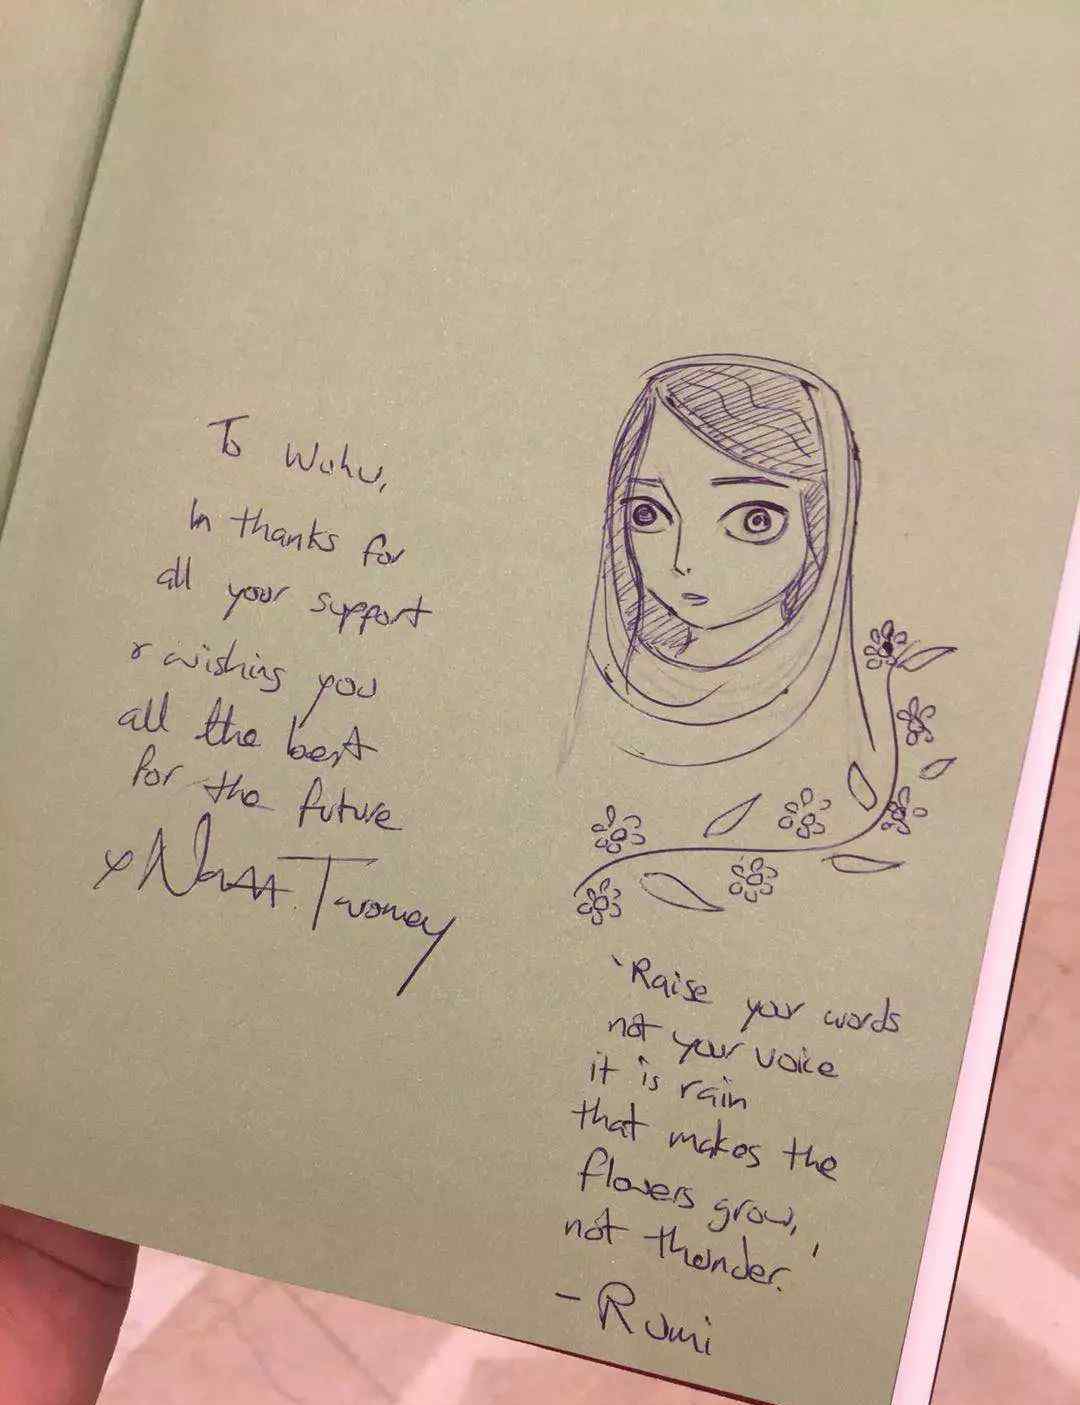 To Wuhu,
In thanks for
all your support
& wishing you
all the best
for the future
x Nora Twomey
'Raise your words
not your voice
it is rain
that makes the
flowers grow,
not thunder.'
- Rumi